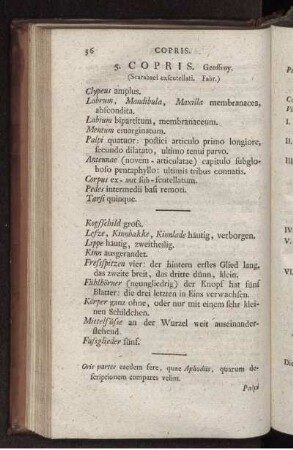 36 COPRIS.
5. COPRIS. Geoffroy.
(Scarabaei exscutellati. Fabr.)
Clypeus amplus.
Labrum, Mandibula, Maxilla membranacea,
abscondita.
Labium bipartitum, membranaceum.
Mentum emarginatum.
Palpi quatuor: postici articulo primo longiore,
secundo dilatato, ultimo tenui parvo.
Antennae (novem-articulatae) capitulo subglo-
boso pentaphyllo: ultimis tribus connatis.
Corpus ex- aut sub-scutellatum.
Pedes intermedii basi remoti.
Tarsi quinque.
Kopfschild gross.
Lefze, Kinnbakke, Kinnlade häutig, verborgen.
Lippe häutig, zweitheilig.
Kinn ausgerandet.
Fressspitzen vier: der hintern erstes Glied lang,
das zweite breit, das dritte dünn, klein.
Fühlhörner (neungliedrig) der Knopf hat fünf
Blätter: die drei letzten in Eins verwachsen.
Körper ganz ohne, oder nur mit einem sehr klei-
nen Schildchen.
Mittelfüsse an der Wurzel weit auseinander-
stehend.
Fussglieder fünf.
Oris partes eaedem fere, quae Aphodiis, quarum de-
scriptionem compares velim.
Palpi